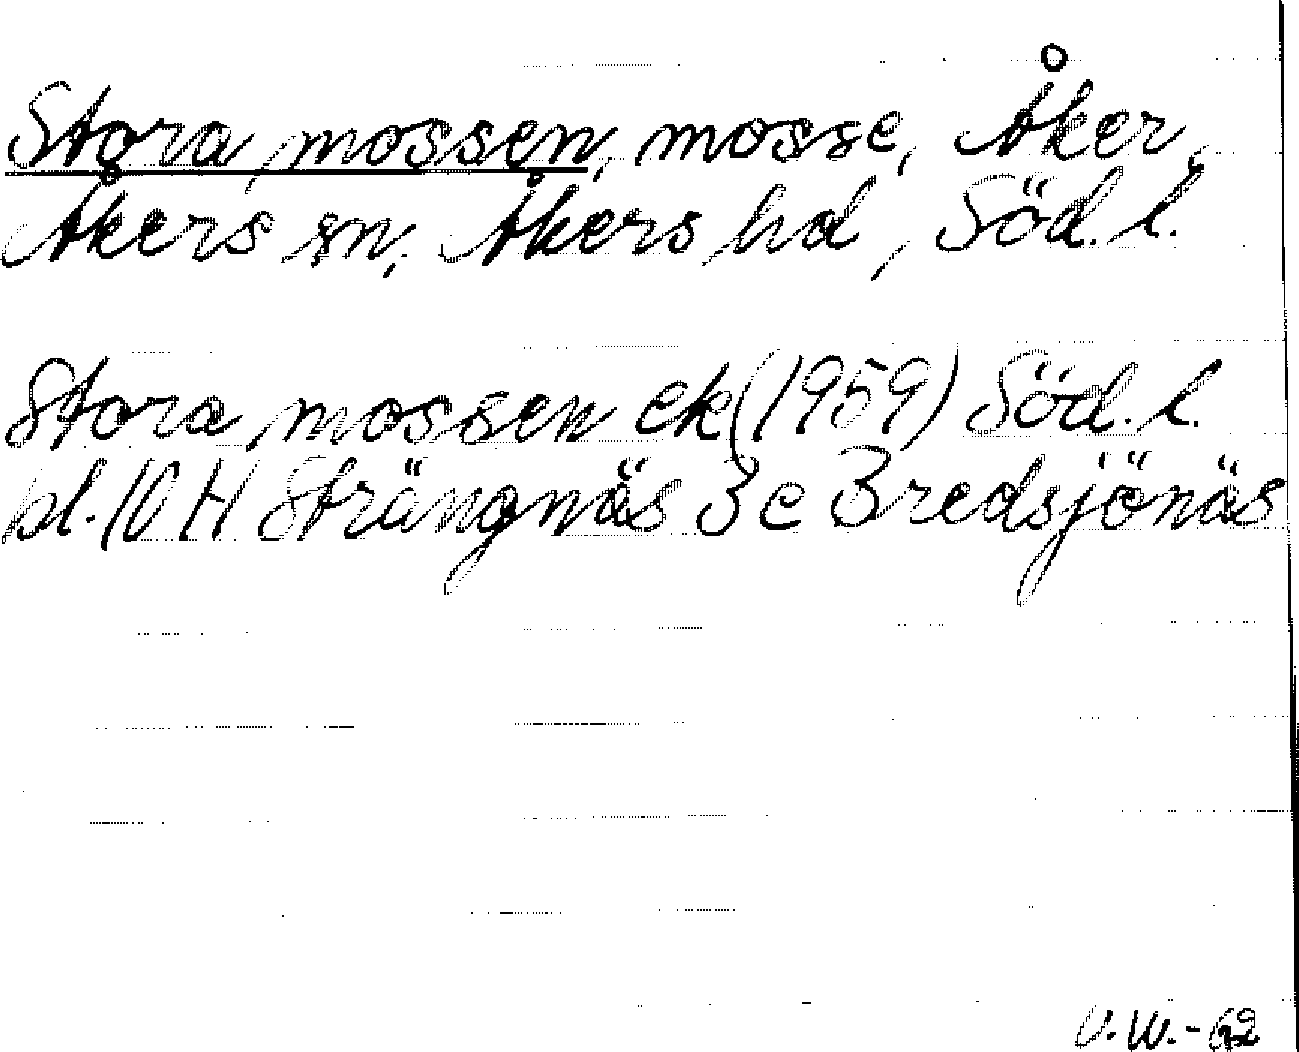 Stora mossen, mosse, Åker,
Åkers sn, Åkers hd, Söd. l.
Stora mossen ek (1959) Söd. l.
bl. 10 H Strängnäs 3 e Bredsjönäs
V. W. - 62